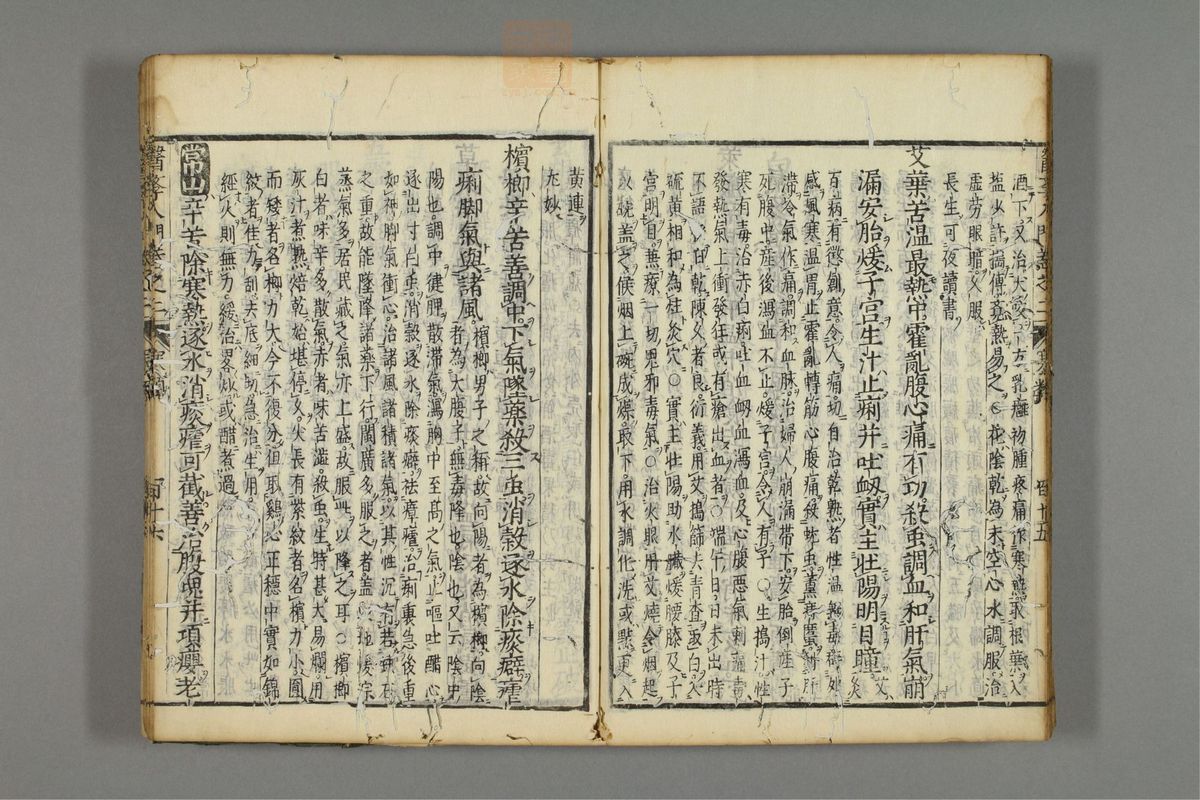 酒下又治大
乳癰初腫疼痛作寒熱取根葉入
塩少許搗傅覺熱易之○花陰乾為末空心水調服治
虛勞眼暗久服
長生可夜讀書
艾葉苦温最熱中霍亂腹心痛有功殺虫調血和肝氣崩
漏安胎煖子宮生汁止痢并吐衂實主壯陽明目瞳
百病有
感風寒温胃止霍亂轉筋心腹痛殺蚘虫薰痔
滞冷氣作痛調和血脉治婦人崩漏帶下安胎倒産子
死腹中産後瀉血不止煖子宮令人有子○生搗汁性
寒有毒治赤白痢吐血衂血瀉血及心腹惡氣刺痛毒
發熱氣上衝發狂或有瘡出血者○端午日日未出時
不語採乾陳久者良衍義用艾搗篩去青查取白入
硫黄相和為炷灸穴○實主壯陽助水臟煖腰膝及子
宮明目兼療一切鬼邪毒氣○治火眼用艾燒令烟起
碗蓋之候烟上碗成煤取下用水調化洗或點更入
黄連
尤妙
檳榔辛苦善調中下氣墜藥殺三虫消穀逐水除痰癖瘧
痢脚氣與諸風
檳榔男子之稱故向陽者為檳榔向陰
者為大腹子無毒降也陰也又云陰中
陽也調中健脾散滞氣瀉胸中至髙之氣止嘔吐醋心
逐出寸白虫消穀逐水除痰癖祛瘴瘧治痢裏急後重
如神脚氣衝心治諸風諸積諸氣以其性沉有若鉄石
之重故能墜降諸藥下行閩廣多服之者盖以地煖淙
蒸氣多居民藏之氣亦上盛故服此以降之耳○檳榔
白者味辛多散氣赤者味苦澁殺虫生時甚大易爛用
灰汁煮熟焙乾始堪停久尖長有紫紋者名檳力小圓
而矮者名榔力大今不復分但取鷄心正穏中實如錦
紋者佳刀刮去底細切急治生用
經火則無力緩治畧炒或醋煮過
常山辛苦除寒熱逐水消痰瘧可截善治腹䘐并項癭老